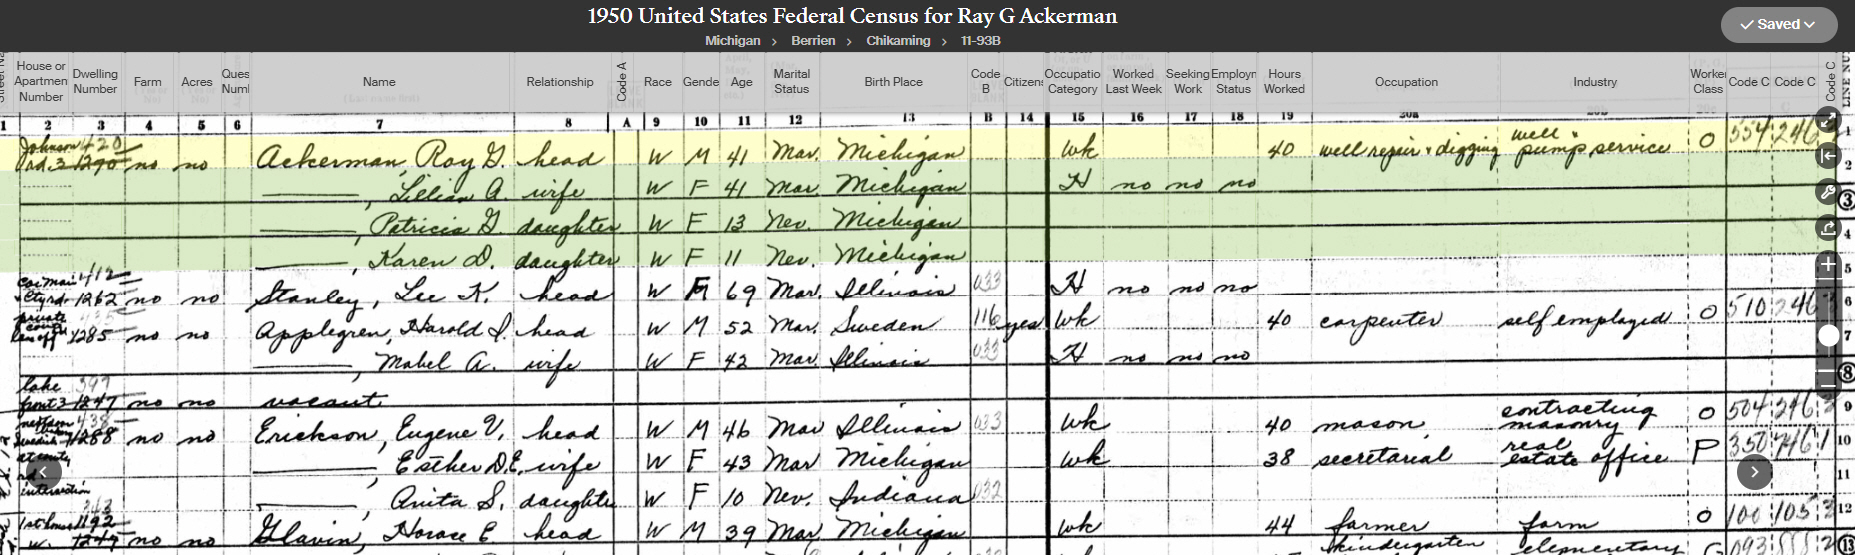 1950 United States Federal Census for Ray G Ackerman
Michigan > Berrien > Chikaming > 11-93B
Saved
House or Apartmen Number Dwelling Number Farm Acres Ques Numl Name Relationship Code A Race Gende Age Marital Status Birth Place Code B Citizen: Occupatio Category Worked Last Week Seeking Work Employn Status Hours Worked Occupation Industry Worke Class Code C Code C Code C LINE NU
1 2 3 4 5 6 7 8 A 9 10 11 12 13 B 14 15 16 17 18 19 20a 20b
Johnson rd. 3 1290 no no Ackerman, Ray G. head W M 41 Mar. Michigan wk 40 well repair + digging well + pump service O 554 246 1
———, Lillian A. wife W F 41 Mar Michigan H no no no 2
———, Patricia G daughter W F 13 Nev. Michigan 3
———, Karen D. daughter W F 11 Nev. Michigan 4
1262 no no Stanley, Lee K. head W 69 Mar. Illinois 033 H no no no 5
1285 no no Applegren, Harold I. head W M 52 Mar. Sweden 116 yes wk 40 carpenter self employed O 510 246 6
———, Mabel A. wife W F 42 Mar. Illinois 033 H no no no 7
lake front 3 1247 no no vacant 8
1288 no no Erickson, Eugene V. head W M 46 Mar Illinois 033 wk 40 mason contracting masonry O 504 246 9
———, Esther D.E. wife W F 43 Mar Michigan wk 38 secretarial real estate office P 350 746 1 10
intersection ———, Anita S. daughter W F 10 Nev. Indiana 032 11
1st house 1192 no no Glavin, Horace E. head W M 39 Mar. Michigan wk 44 farmer farm O 100 105 12
kindergarten elementary 13